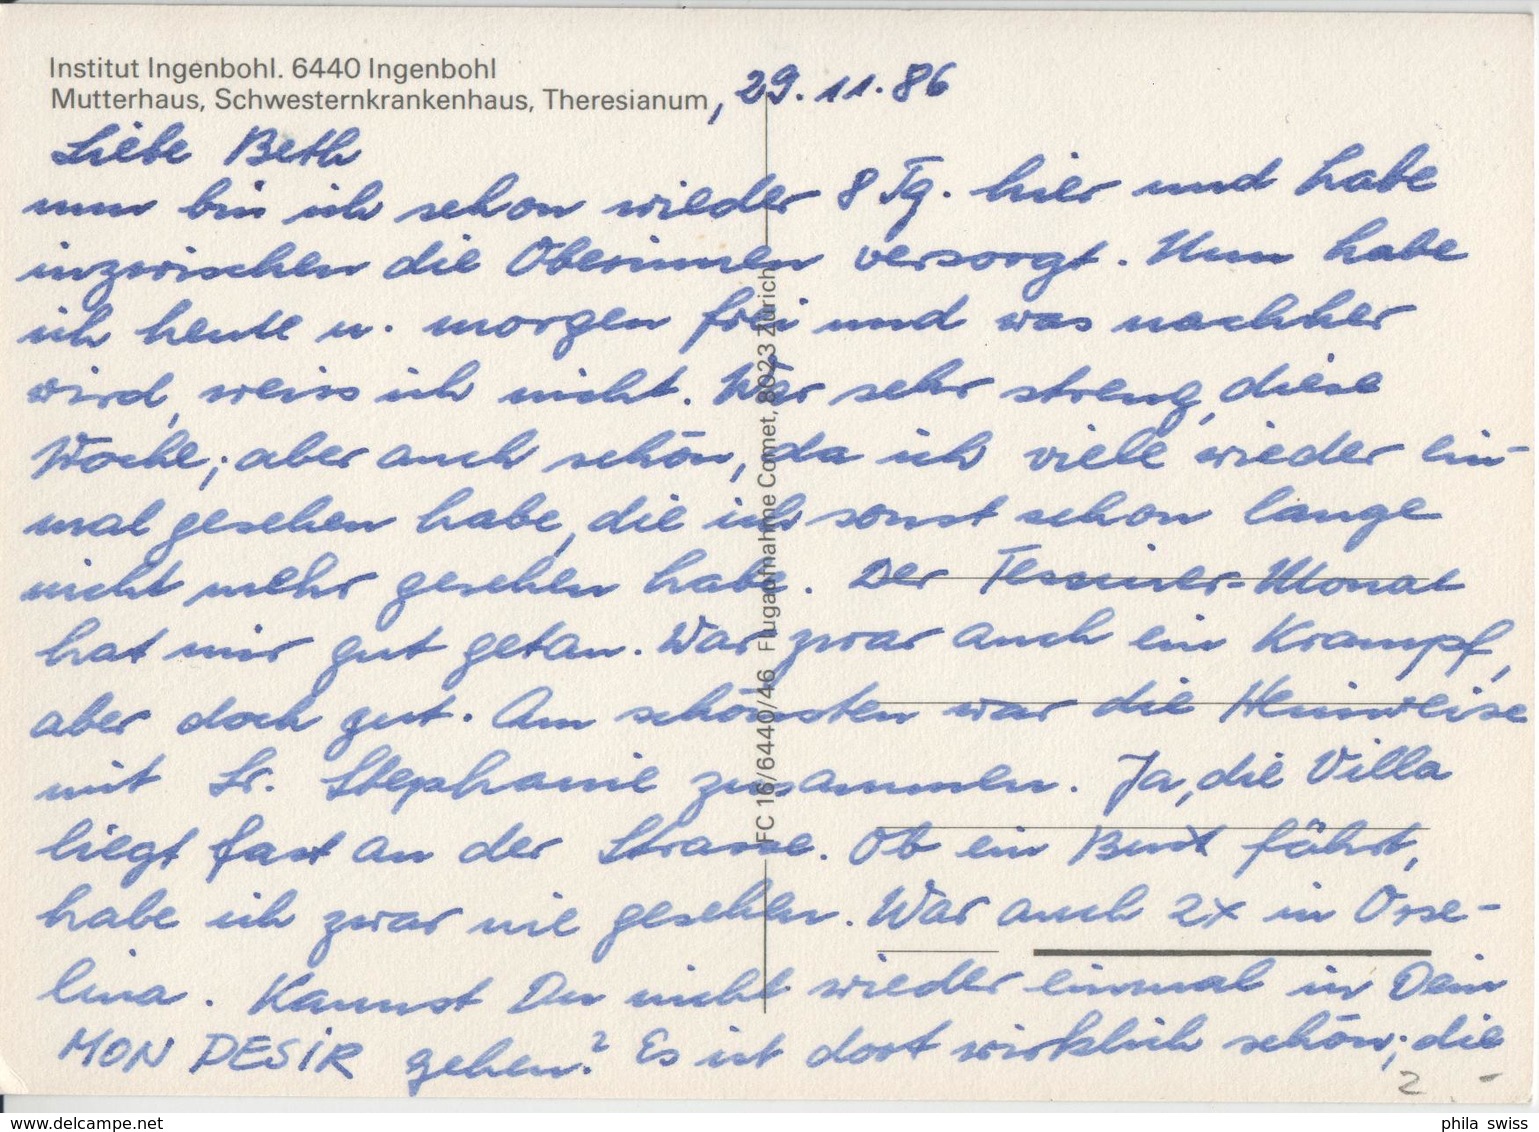 Institut Ingenbohl. 6440 Ingenbohl
Mutterhaus, Schwesternkrankenhaus, Theresianum, 29.11.86
Liebe Beth
nun bin ich schon wieder 8 Tg. hier und habe
inzwischen die Oberinnen versorgt. Nun habe
ich heute u. morgen frei und was nachher
wird, weiss ich nicht. War sehr streng, diese
Woche; aber auch schön, da ich viele wieder ein-
mal gesehen habe, die ich sonst schon lange
nicht mehr gesehen habe. Der Tessiner-Monat
hat mir gut getan. War zwar auch ein Krampf,
aber doch gut. Am schönsten war die Heimreise
mit Sr. Stephanie zusammen. Ja, die Villa
liegt fast an der Strasse. Ob ein Bus fährt,
habe ich zwar nie gesehen. War auch 2x in Orse-
lina. Kannst Du nicht wieder einmal in Dein
MON DESIR gehen? Es ist dort wirklich schön; die
FC 16/6440/46 Flugaufnahme Comet, 8023 Zürich
2 -
www.delcampe.net
phila swiss